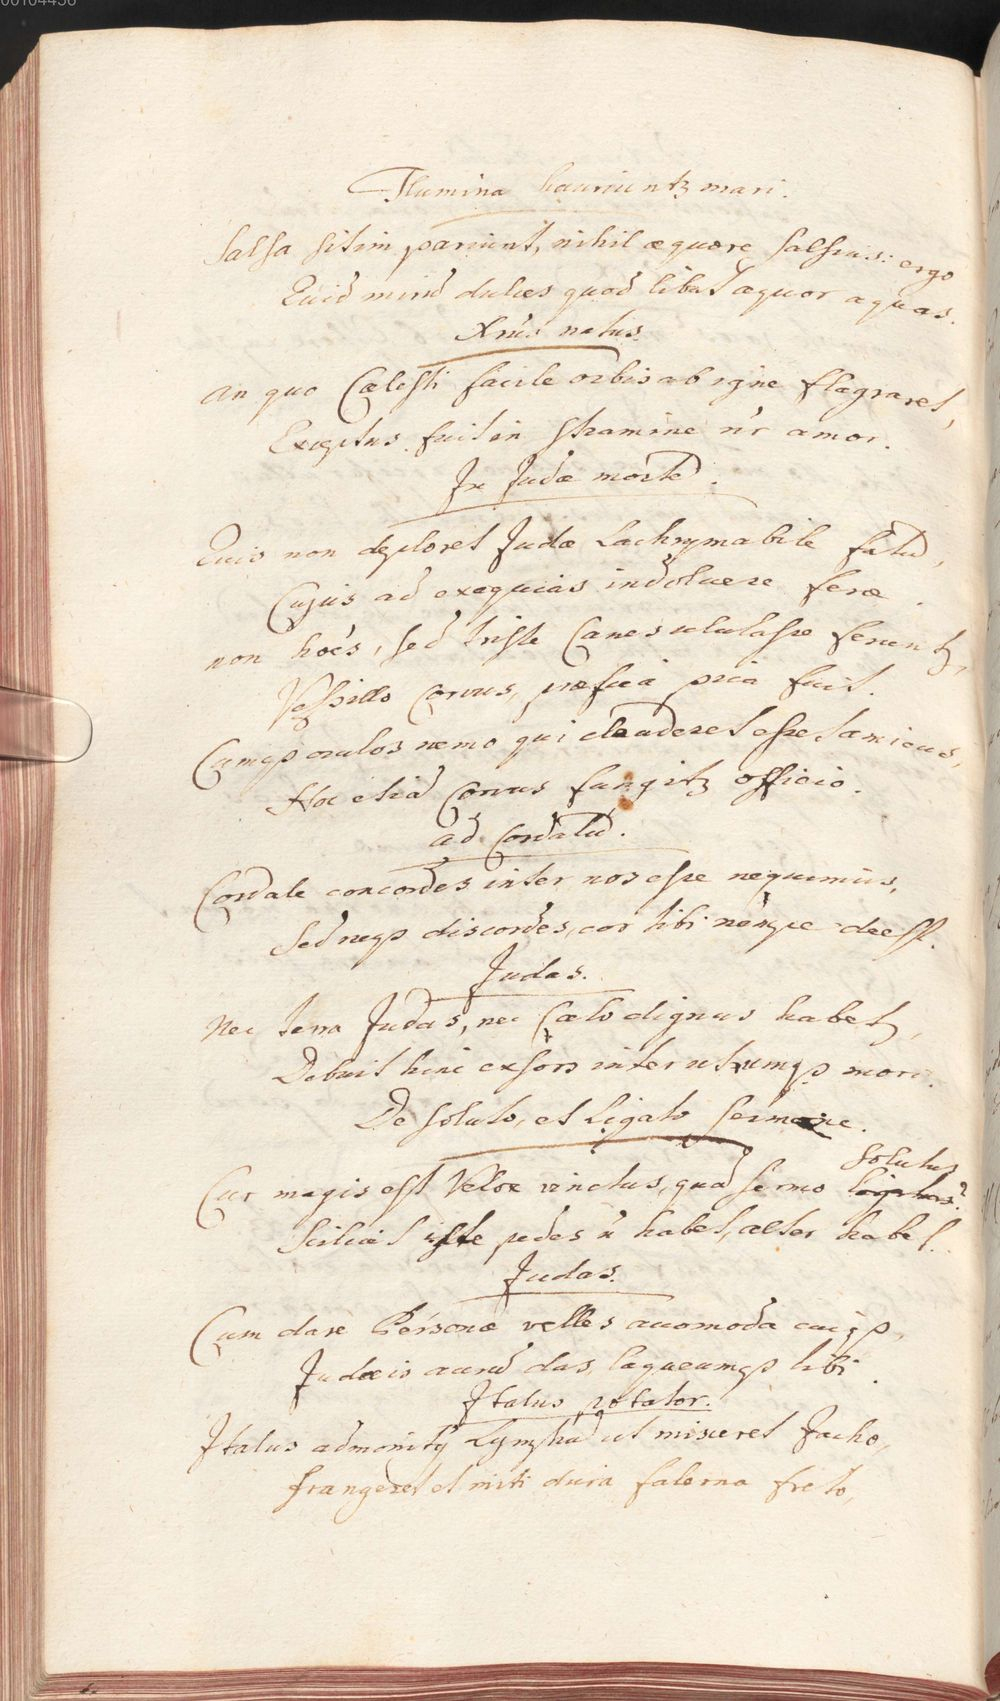 00104436
Flumina hauriuntꝫ mari.
Salsa sitim pariunt, nihil æquore salsius: ergo
Quid mirũ dulces quod libat æquor aquas.
Xrũs natus.
An quo Cælesti facile orbis ab igne flagraret,
Exceptus fuit in stramine nr̃ amor.
In Judæ mortẽ.
Quis non deploret Judæ Lachrymabile fatũ,
Cujus ad exequias indoluere feræ.
non hões, sed triste Canes ululasse feruntꝫ,
Vespillo Corvus, præfica pica fuit.
Cumqꝫ oculos nemo qui clauderet esset amicus,
Hoc etiã Corvus fungitꝫ officio.
ad Cordatũ.
Cordate concordes inter nos esse nequimus,
Sed neqꝫ discordes, cor tibi nempe deest.
Judas.
Nec terra Judas, nec Cælo dignus habetꝫ,
Debuit hinc exsors inter utrumqꝫ mori.
De soluto, et Ligato sermone.
Solutus
Cur magis est Velox vinctus, quã sermo ligatus?
Scilicet iste pedes ñ habet, alter habet.
Judas.
Cum dare Personæ velles accomoda cuiqꝫ,
Judæis aurũ das, laqueumqꝫ tibi.
Italus potator.
Italus admonitꝰ Lymphã ut misceret Jacho,
frangeret et miti dura falerna freto,